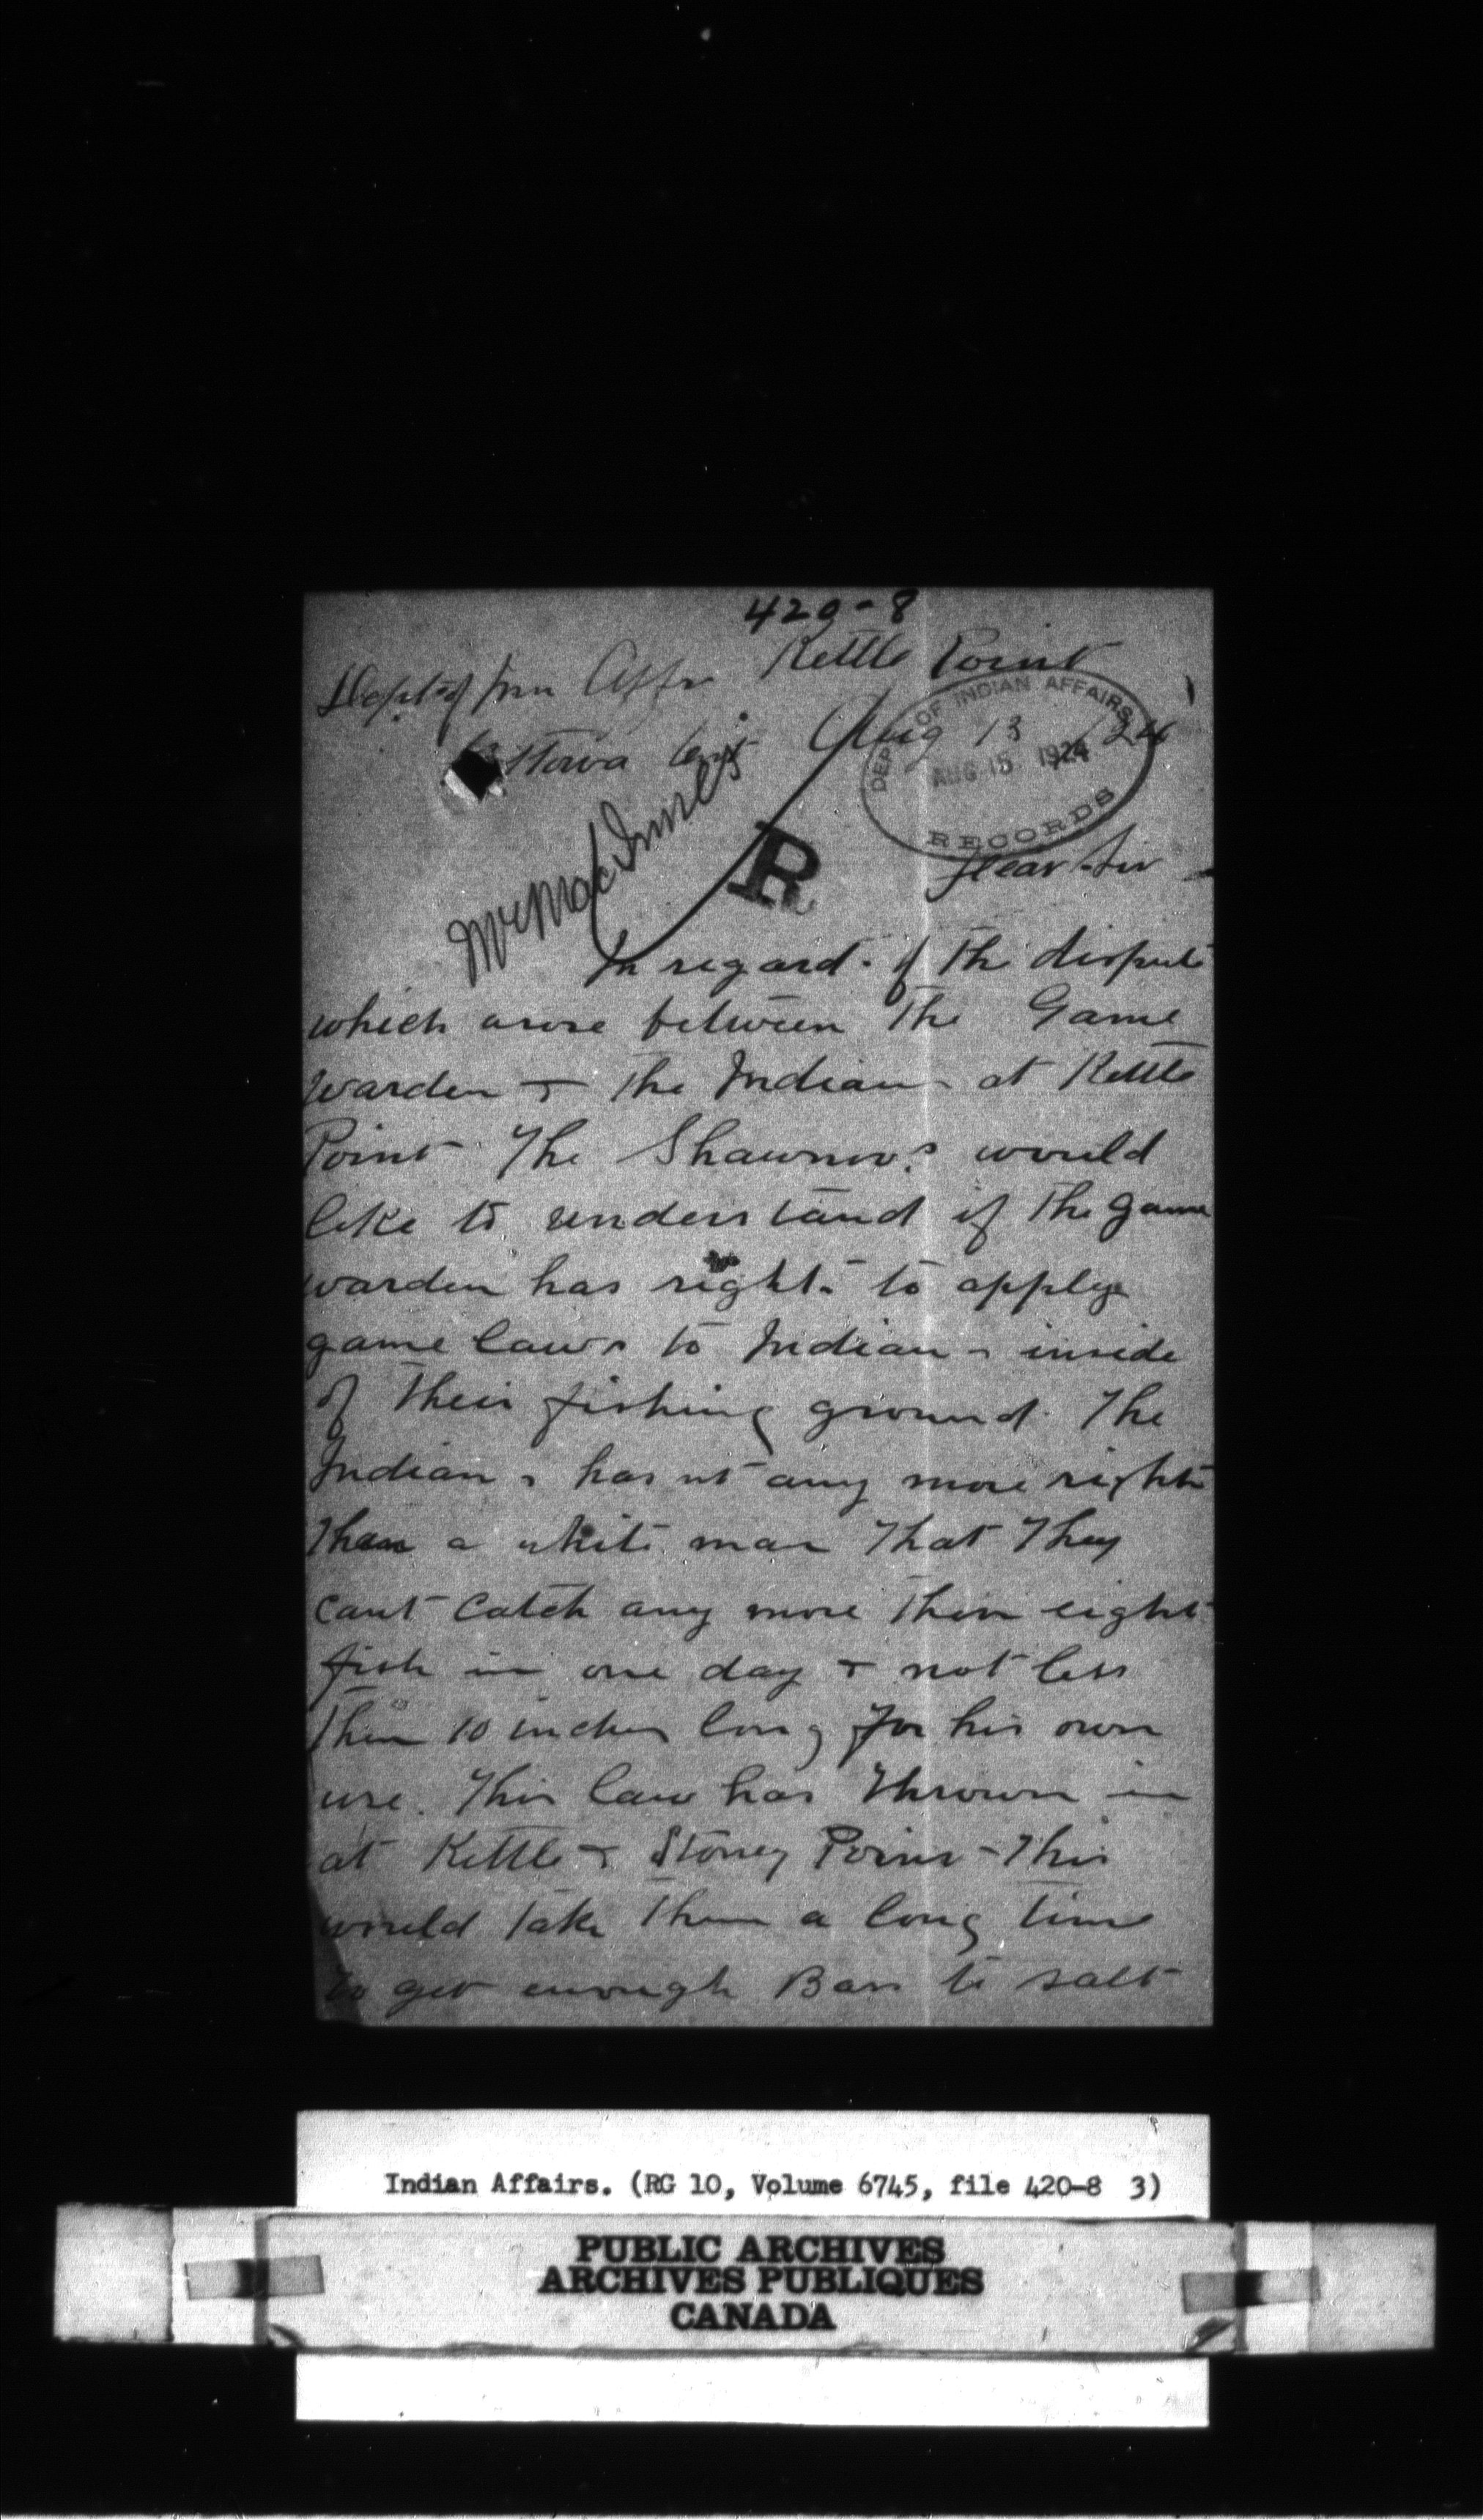 420-8
Kettle Point
Dept of Inn Affr
Aug 13 / 24
Ottawa Ont
DEPT OF INDIAN AFFAIRS
AUG 15 1924
RECORDS
Mr MacInnes
R
Dear Sir
In regard of the dispute
which arose between the Game
warden + the Indians at Kettle
Point The would
like to understand if the game
warden has right to apply
game laws to Indians inside
of their fishing ground. The
Indians has nt any more right
than a white man that they
cant catch any more then eight
fish in one day + not less
then 10 inches long for his own
use. This law has thrown in
at Kettle + Stoney Point - This
would take them a long time
to get enough Bass to salt
Indian Affairs. (RG 10, Volume 6745, file 420-8 3)
PUBLIC ARCHIVES
ARCHIVES PUBLIQUES
CANADA